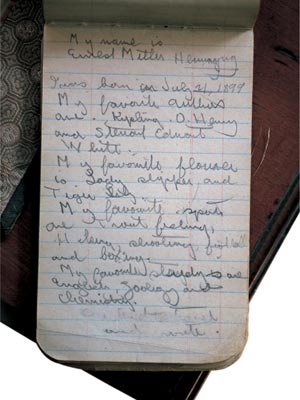 My name is
Ernest Miller Hemingway
I was born on July 21, 1899
My favorite authies
are - Kipling, O. Henry
and Steuart Edward
White.
My favourite flower
is Lady slipper and
Tiger Lily.
My favourite sports
are Trout fishing,
Hiking, shooting, football
and boxing.
My favorite studys are
English, Zoology and
Chemistry.
and write.